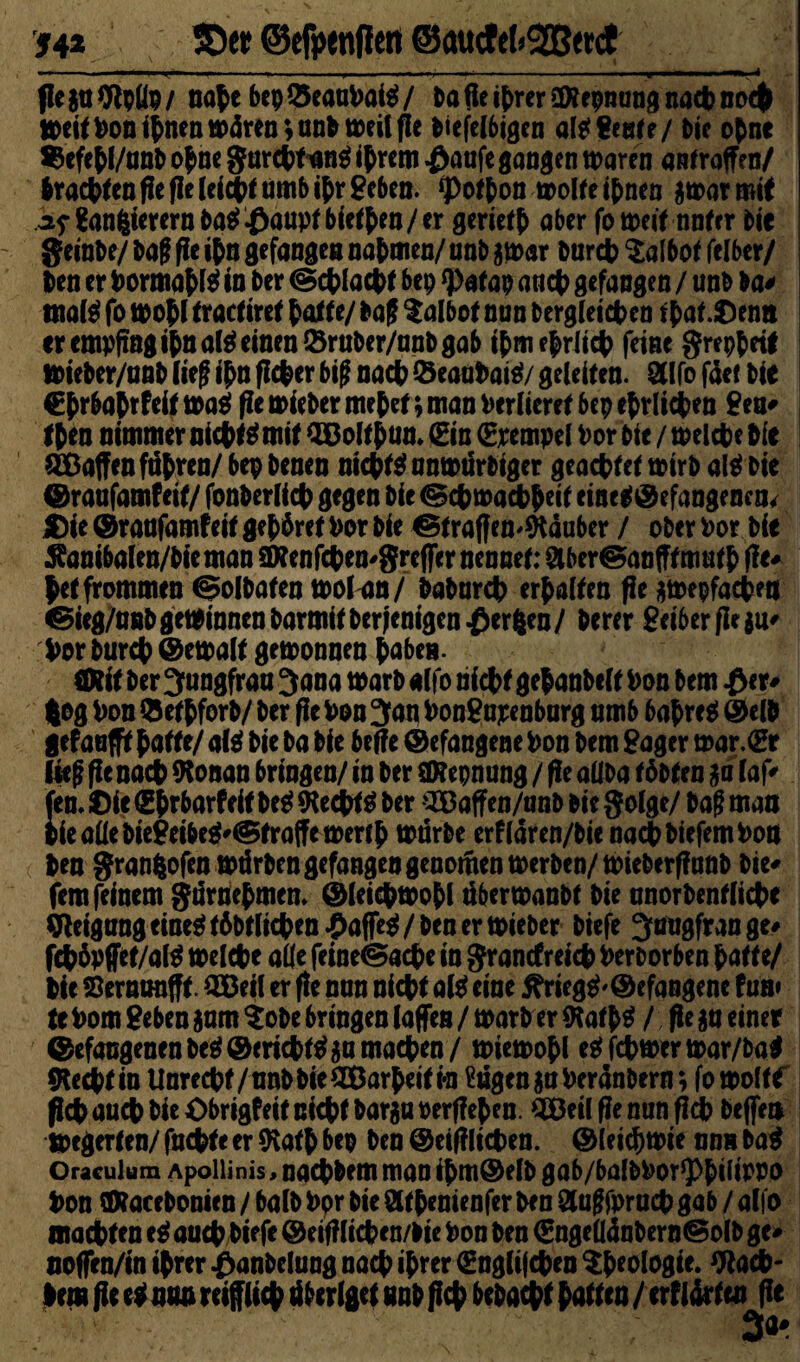 742 Der Gespensten Gauckel-Werck
sie zu Nylly / nahe bey Beauvais / da sie ihrer Meynung nach noch
weit von ihnen wären; und weil sie dieselbigen als Leute / die ohne
Befehl/und ohne Furcht aus ihrem Hause gangen waren antraffen/
brachten sie sie leicht umb ihr Leben. Pothon wolte ihnen zwar mit
25 Lantzierern das Haupt biethen / er gerieth aber so weit unter die
Feinde/ daß sie ihn gefangen nahmen/ und zwar durch Talbot selber/
den er vormahls in der Schlacht bey Patay auch gefangen / und da-
mals so wohl tractiret hatte/ daß Talbot nun dergleichen that. Denn
er empfing ihn als einen Bruder/und gab ihm ehrlich seine Freyheit
wieder/und ließ ihn sicher biß nach Beauvais/ geleiten. Also säet die
Ehrbahrkeit was sie wieder mehet; man verlieret bey ehrlichen Leu-
then nimmer nichts mit Wolthun. Ein Exempel vor die / welche die
Waffen führen/ bey denen nichts unwürdiger geachtet wird als die
Grausamkeit/ sonderlich gegen die Schwachheit eines Gefangenen.
Die Grausamkeit gehöret vor die Strassen-Räuber / oder vor die
Kanibalen/die man Menschen-Fresser nennet: Aber Sanfftmuth ste-
het frommen Soldaten wol an / dadurch erhalten sie zweyfachen
Sieg/und gewinnen darmit derjenigen Hertzen / derer Leiber sie zu-
vor durch Gewalt gewonnen haben.
Mit der Jungfrau Jana ward also nicht gehandelt von dem Her-
tzog von Bethford/ der sie von Jan von Luxenburg umb bahres Geld
gekaufft hatte/ als die da die beste Gefangene von dem Lager war. Er
ließ sie nach Ronan bringen/ in der Meynung / sie allda tödten zu las-
sen. Die Ehrbarkeit des Rechts der Waffen/und die Folge/ daß man
die alle die Leibes-Straffe werth würde erklären/die nach diesem von
den Frantzosen würden gefangen genomen werden/ wiederstund die-
sem seinem Fürnehmen. Gleichwohl überwandt die unordentliche
Neigung eines tödtlichen Hasses / den er wieder diese Jungfrau ge-
schöpffet/als welche alle seine Sache in Franckreich verdorben hatte/
die Vernunfft. Weil er sie nun nicht als eine Kriegs-Gefangene kun-
te vom Leben zum Tode bringen lassen / ward er Raths / sie zu einer
Gefangenen des Gerichts zu machen / wiewohl es schwer war/das
Recht in Unrecht / und die Warheit in Lügen zu verändern; so wolte
sich auch die Obrigkeit nicht darzu verstehen. Weil sie nun sich dessen
wegerten/ suchte er Rath bey den Geistlichen. Gleichwie nun das
Oraculum Apollinis, nachdem man ihm Geld gab/bald vor Philippo
von Macedonien / bald vor die Athenienser den Außspruch gab / also
machten es auch diese Geistlichen/die von den Engelländern Sold ge-
nossen/in ihrer Handelung nach ihrer Englischen Theologie. Nach-
dem sie es nun reifflich überleget und sich bedacht hatten / erklärten sie
Ja-